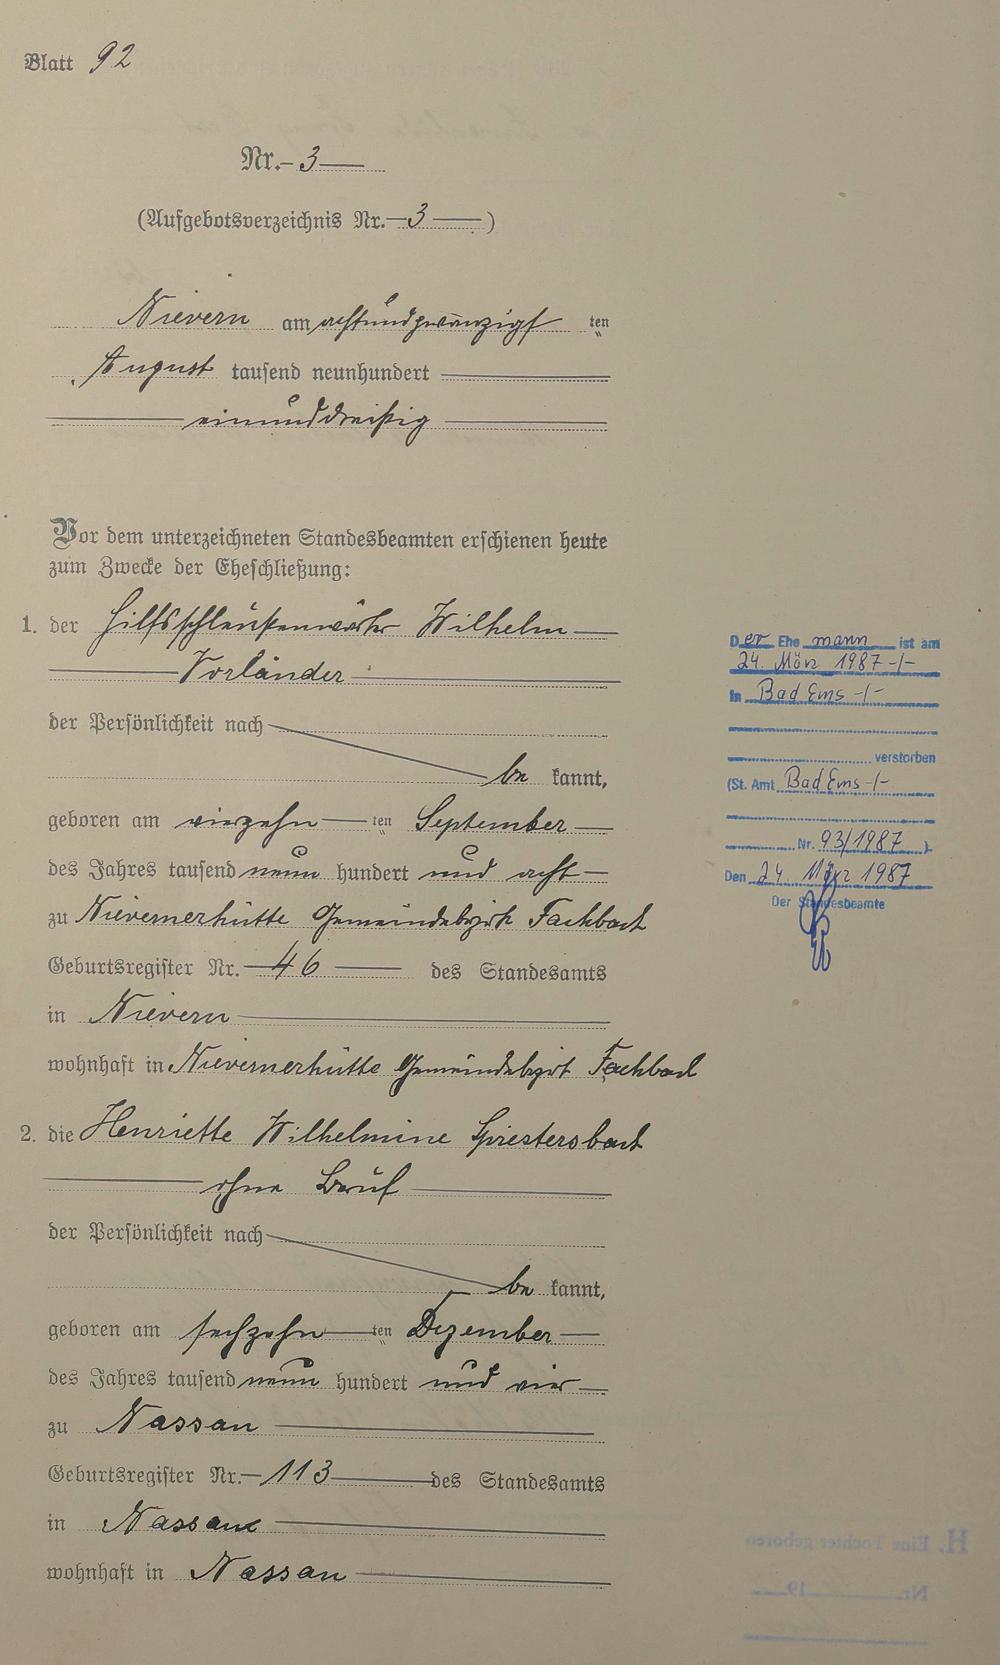 Blatt 92
Nr. 3
(Aufgebotsverzeichnis Nr. 3)
Nievern am achtundzwanzigsten
August tausend neunhundert
einunddreißig
Vor dem unterzeichneten Standesbeamten erschienen heute
zum Zwecke der Eheschließung:
1. der Hilfsschleußenwärter Wilhelm
Vorländer
der Persönlichkeit nach
be kannt,
geboren am vierzehn ten September
des Jahres tausend neun hundert und acht
zu Nievernerhütte Gemeindebezirk Fachbach
Geburtsregister Nr. 46 des Standesamts
in Nievern
wohnhaft in Nievernerhütte Gemeindebezirk Fachbach
2. die Henriette Wilhelmine Spriestersbach
ohne Beruf
der Persönlichkeit nach
be kannt,
geboren am sechzehn ten Dezember
des Jahres tausend neun hundert und vier
zu Nassau
Geburtsregister Nr. 113 des Standesamts
in Nassau
wohnhaft in Nassau
Der Ehe mann ist am
24. März 1987 -/-
in Bad Ems -/-
verstorben
(St. Amt Bad Ems -/-
Nr. 93/1987 ).
Den 24. März 1987
Der Standesbeamte
H. Eine Tochter geboren
Nr. 19